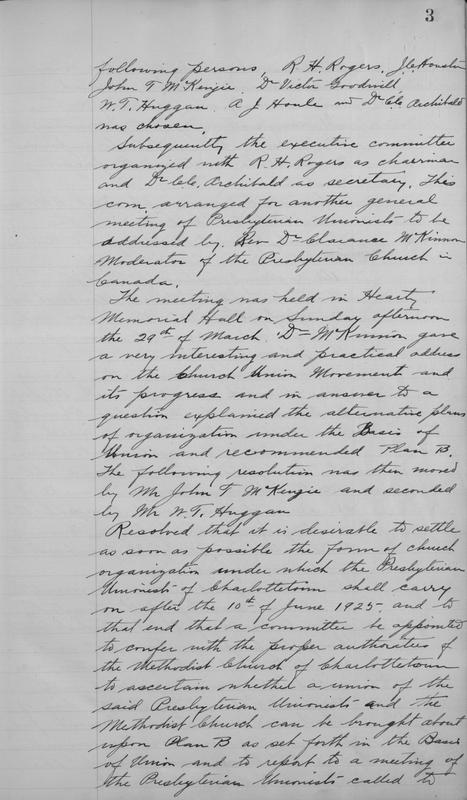 3
following persons, R. H. Rogers, J. C. Houston
John T McKenzie, Dr Victor Goodwill,
W. T. Huggan. A J Houle and Dr Archibald
was chosen.
Subsequently the executive committee
organized with R. H. Rogers as chairman
and Dr Archibald as secretary. This
com arranged for another general
meeting of Presbyterian Unionists to be
addressed by Rev Dr Clarance McKinnon
Moderator of the Presbyterian Church in
Canada.
The meeting was held in Heartz
Memorial Hall on Sunday afternoon
the 29th of March. Dr McKinnon gave
a very interesting and practical address
on the Church Union Movement and
its progress and in answer to a
question explained the alternative plans
of organization under the Basis of
Union and recommended Plan B.
The following resolution was then moved
by Mr John T McKenzie and seconded
by Mr W. T. Huggan
Resolved that it is desirable to settle
as soon as possible the form of church
organization under which the Presbyterian
Unionists of Charlottetown shall carry
on after the 10th of June 1925, and to
that end that a committee be appointed
to confer with the proper authorities of
the Methodist Church of Charlottetown
to ascertain whether a union of the
said Presbyterian Unionists and the
Methodist Church can be brought about
upon Plan B as set forth in the Basis
of Union and to report to a meeting of
the Presbyterian Unionists called to